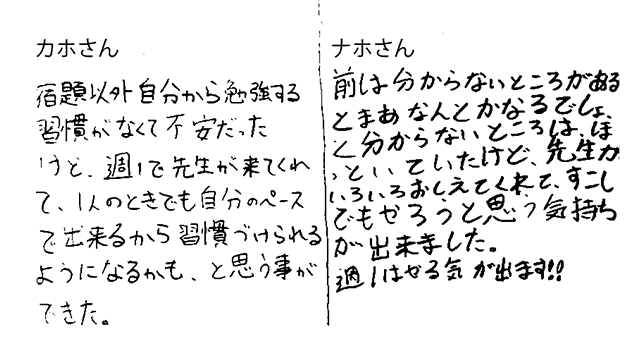 カホさん
宿題以外自分から勉強する
習慣がなくて不安だった
けど、週1で先生が来てくれ
て、1人のときでも自分のペース
で出来るから習慣づけられる
ようになるかも、と思う事が
できた。
ナホさん
前は分からないところがある
とまあなんとかなるでしょ
と分からないところは、ほ
っといていたけど、先生が
いろいろおしえてくれて、すこし
でもやろうと思う気持ち
が出来ました。
週1はやる気が出ます!!